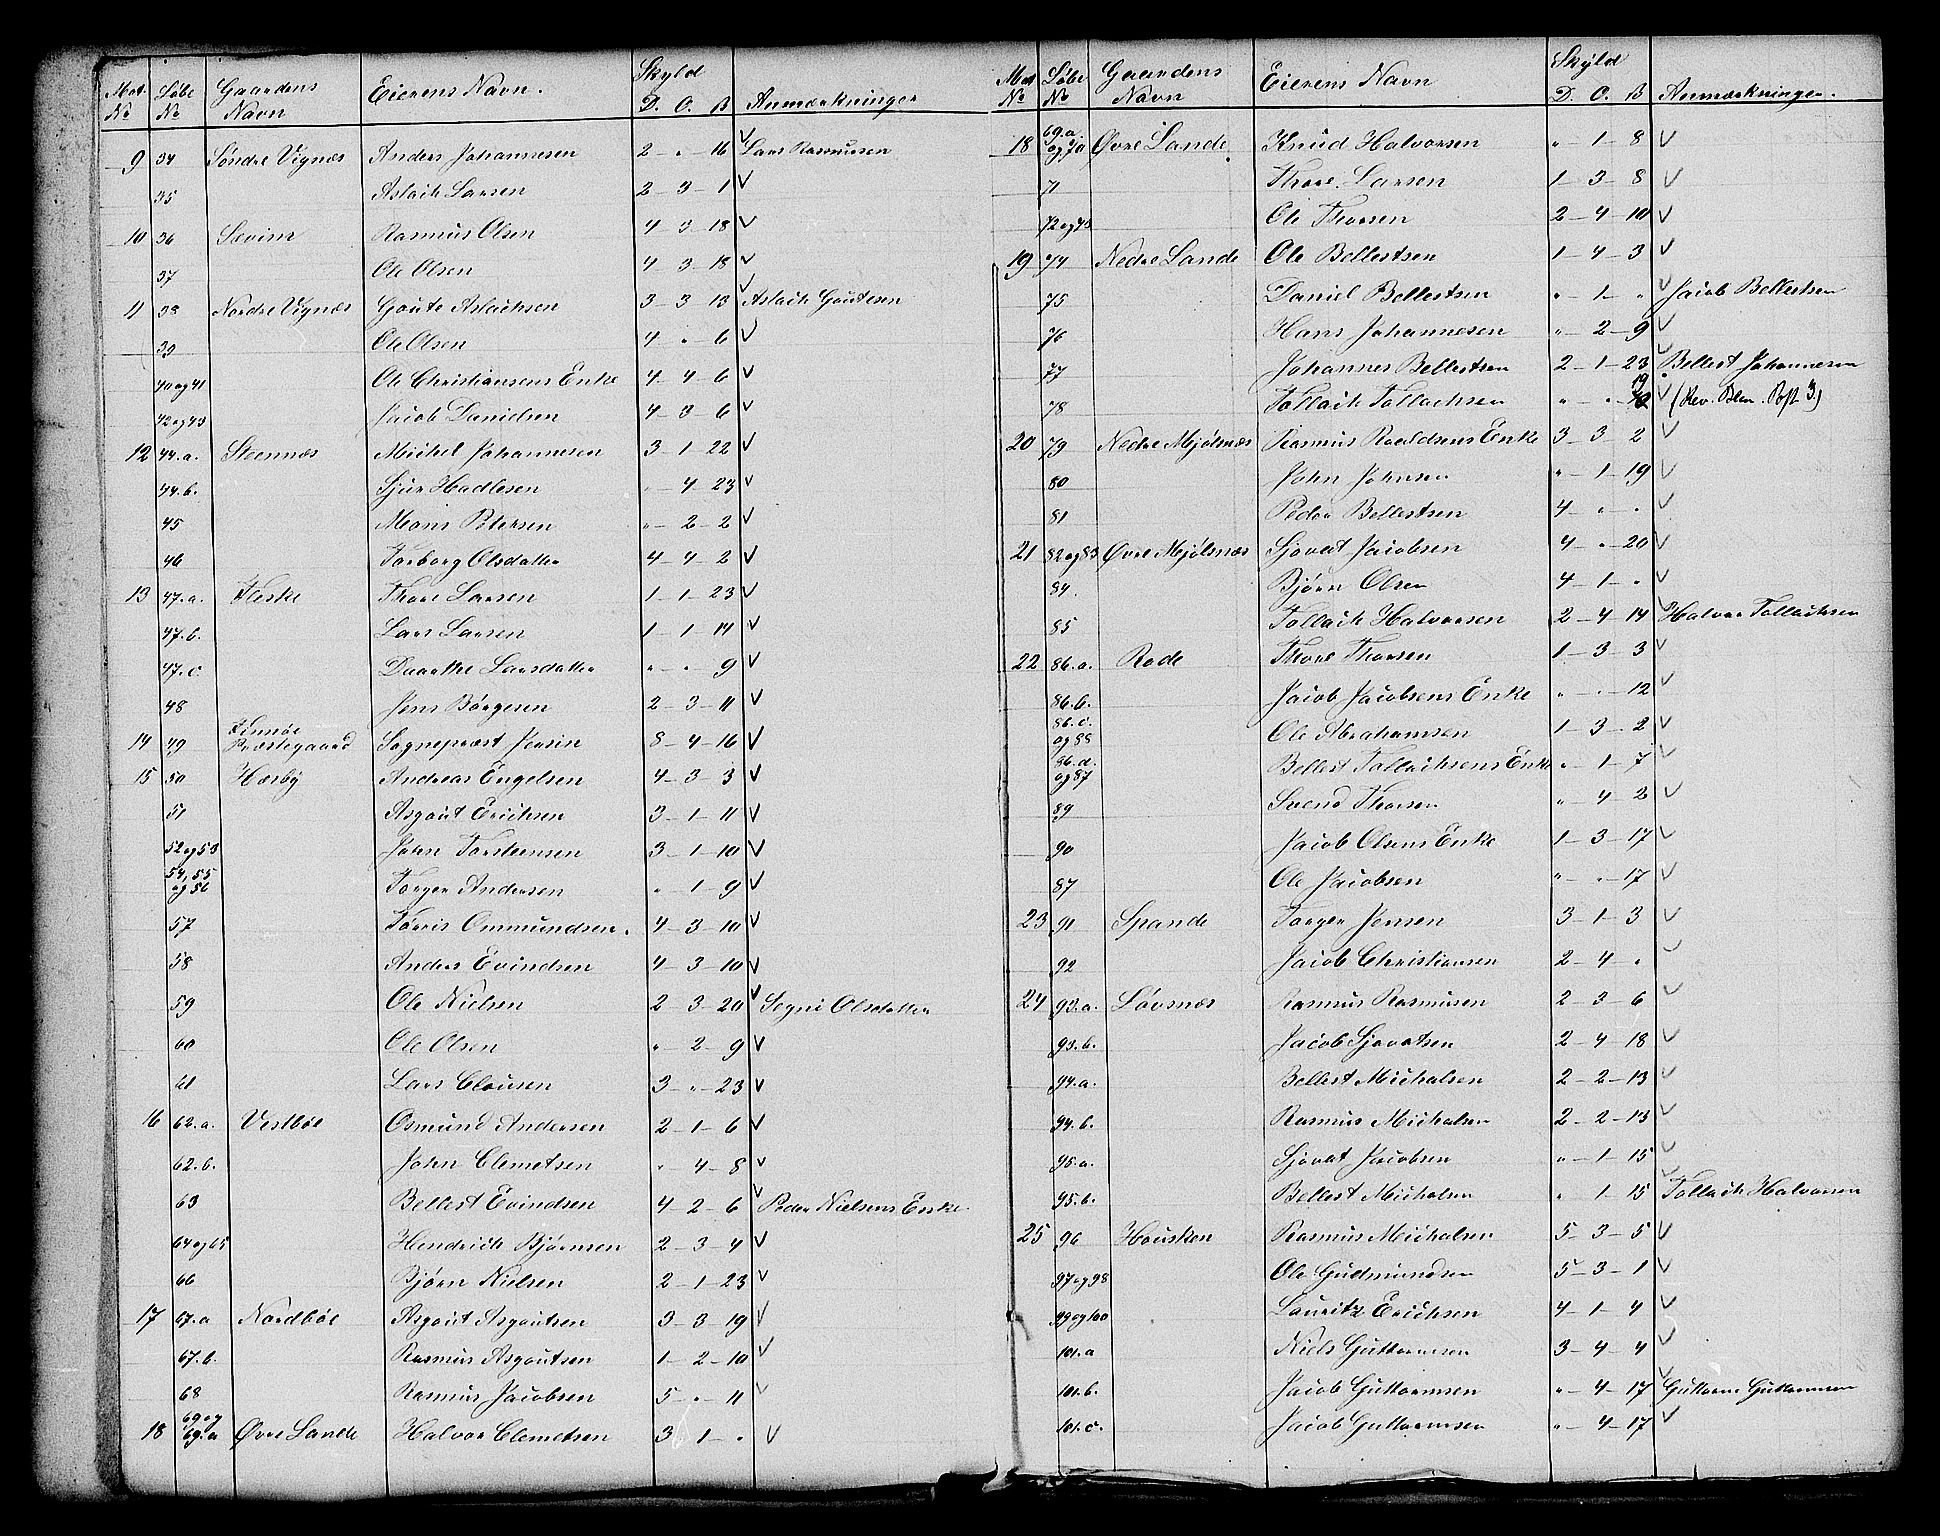 Mat. No Løbe No Gaardens Navn Eierens Navn. Skyld D. O. B Anmærkninger
9 34 Søndre Vignæs Anders Johannesen 2 - „ - 16 ✓ Lars Rasmusen
35 Aslach Larsen 2 - 3 - 1 ✓
10 36 Sevim Rasmus Olsen 4 - 3 - 18 ✓
37 Ole Olsen 4 3 - 18 ✓
11 38 Nordre Vignæs Goute Aslachsen 3 - 3 13 ✓ Aslach Goutesen
39 Ole Olsen 4 - „ - 6 ✓
40 og 41 Ole Christiansens Enke 4 - 4 - 6 ✓
42 og 43 Jacob Danielsen 4 - 3 - 6 ✓
12 44.a. Steennæs Michel Johannesen 3 - 1 - 22 ✓
44.b. Sjur Hadlesen „ - 4 - 23 ✓
45 Mons Petersen „ - 2 - 2 ✓
46 Torborg Olsdatter 4 - 4 - 2 ✓
13 47.a. Fleske Thore Larsen 1 - 1 - 23 ✓
47.b. Lars Larsen 1 - 1 - 14 ✓
47.c Daarthe Larsdatter „ - „ - 9 ✓
48 Jens Børgesen 2 - 3 - 11 ✓
14 49 Finnøe Præstegaard Sognepræst Jersin 8 - 4 - 16 ✓
15 50 Hæsby Andreas Engelsen 4 - 3 - 3 ✓
51 Asgout Erichsen 3 - 1 - 11 ✓
52 og 53 John Torstensen 3 - 1 - 10 ✓
54, 55 og 56 Torger Andersen „ - 1 - 9 ✓
57 Tørris Ommundsen. 4 - 3 - 10 ✓
58 Anders Evindsen 4 - 3 - 10 ✓
59 Ole Nielsen 2 - 3 - 20 ✓ Segni Olsdatter
60 Ole Olsen „ 2 - 9 ✓
61 Lars Clausen 3 - „ - 23 ✓
16 62.a. Vestbøe Osmund Andersen 2 - 1 - 6 ✓
62.b. John Clemetsen „ 4 - 8 ✓
63 Bellest Evindsen 4 - 2 - 6 ✓ Peder Nielsens Enke.
64 og 65 Hendrich Bjørnsen 2 - 3 - 4 ✓
66 Bjørn Nielsen 2 - 1 - 23 ✓
17 67.a Nordbøe Asgout Asgoutsen 3 - 3 - 19 ✓
67.b. Rasmus Asgoutsen 1 - 2 - 10 ✓
68 Rasmus Jacobsen 5 - „ - 11 ✓
18 69 og 69.a Øvre Lande Halvor Clemetsen 3 - 1 - „ ✓
Mat No Løbe No Gaardens Navn Eierens Navn Skyld D. O. B Anmærkninger.
18 69.a. og 70 Øvre Lande Knud Halvorsen „ - 1 - 8 ✓
71 Thore Larsen 1 - 3 - 8 ✓
72 og 73 Ole Thorsen 2 - 4 - 10 ✓
19 74 Nedre Lande Ole Bellestsen 1 - 4 - 3 ✓
75 Daniel Bellestsen „ - 1 - „ ✓ Jacob Bellestsen
76 Hans Johannesen „ - 2 - 9 ✓
77 Johannes Bellestsen 2 - 1 - 23 ✓ Bellest Johannesen
78 Tollach Tollachsen „ - „ - 19 ✓ (Rev. Blm. Post 3.)
20 79 Nedre Mjølsnæs Rasmus Roaldsens Enke 3 - 3 - 2 ✓
80 John Johnsen „ - 1 - 19 ✓
81 Peder Bellestsen 4 - „ - „ ✓
21 82 og 83 Øvre Mjølsnæs Sjovat Jacobsen 4 - „ - 20 ✓
84. Bjørn Olsen 4 - 1 - „ ✓
85 Tollach Halvorsen 2 - 4 - 14 ✓ Halvor Tollachsen
22 86.a. Rode Thore Thorsen 1 - 3 - 3 ✓
86.b. Jacob Jacobsens Enke „ - „ - 12 ✓
86.c. og 88 Ole Abrahamsen 1 - 3 - 2 ✓
86.d. og 87 Bellest Tollachsens Enke „ - 1 - 7 ✓
89 Svend Thorsen „ - 4 - 2 ✓
90 Jacob Olsens Enke 1 - 3 - 17 ✓
87 Ole Jacobsen „ - „ - 17 ✓
23 91 Spande Torger Jensen 3 - 1 - 3 ✓
92 Jacob Christiansen 2 - 4 - „ ✓
24 93.a. Løvsnæs Rasmus Rasmusen 2 - 3 - 6 ✓
93.b. Jacob Sjovatsen 2 - 4 - 18 ✓
94.a. Bellest Michalsen 2 - 2 - 13 ✓
94.b. Rasmus Michalsen 2 - 2 - 13 ✓
95.a. Sjovat Jacobsen „ - 1 - 15 ✓
95.b. Bellest Michalsen „ 1 - 15 ✓ Tollach Halvorsen
25 96 Housken Rasmus Michalsen 5 - 3 - 5 ✓
97 og 98 Ole Gudmundsen 5 - 3 - 1 ✓
99 og 100 Lauritz Erichsen 4 - 1 - 4 ✓
101.a Niels Guttormsen 3 - 4 - 4 ✓
101.b. Jacob Guttormsen „ - 4 - 17 ✓ Guttorm Guttormsen
101.c. Jacob Guttormsen „ - 4 - 17 ✓